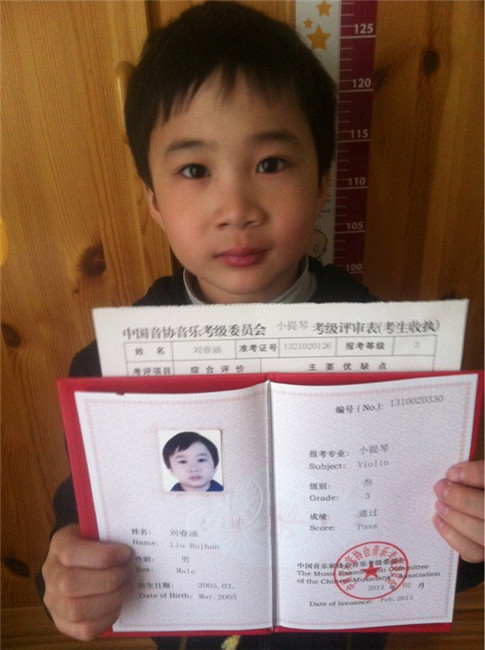 125
120
115
110
105
100
中国音协音乐考级委员会 小提琴 考级评审表(考生收执)
姓名 刘睿涵 准考证号 1321020126 报考等级 3
考评项目 综合评价 主要优缺点
编号 (No.): 1310020330
报考专业: 小提琴
Subject: Violin
级别: 叁
Grade: 3
成绩: 通过
Score: Pass
姓名: 刘睿涵
Name: Liu Ruihan
性别: 男
Sex: Male
出生日期: 2005.03.
Date of Birth: Mar.2005
中国音乐家协会音乐考级委员会
The Music Examination Committee
of the Chinese Musicians' Association
2013 年 02 月
Date of Issuance: Feb,2013